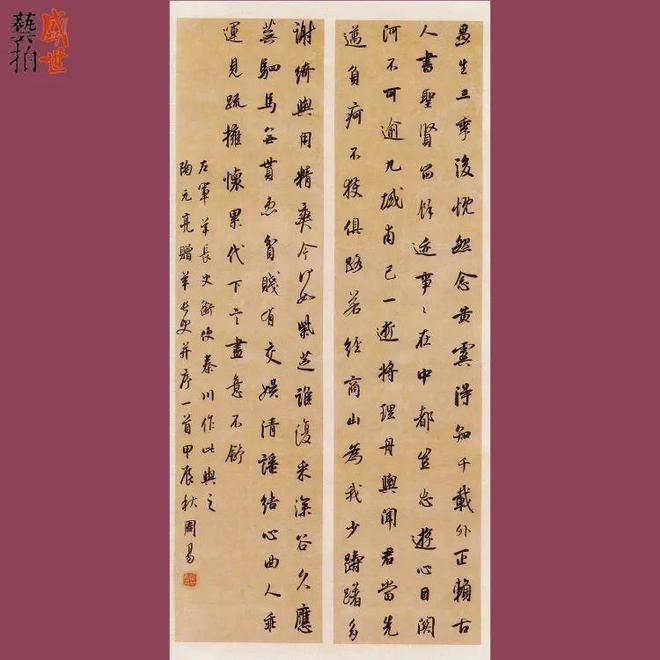 盛世
藝拍
愚生三季後慨然念黃虞得知千載外正賴古
人書聖賢留餘迹事〻在中都豈忘遊心目関
河不可逾九域甫已一逝將理舟輿聞君當先
邁負疴不獲俱路若經商山為我少躊躇多
謝綺與甪精爽今何如紫芝誰復采深谷久應
蕪駟馬無貰患貧賤有交娛清謠結心曲人乖
運見疏擁懷累代下言盡意不舒
左軍羊長史銜使秦川作此與之
陶元亮贈羊長史并序一首甲辰秋周易